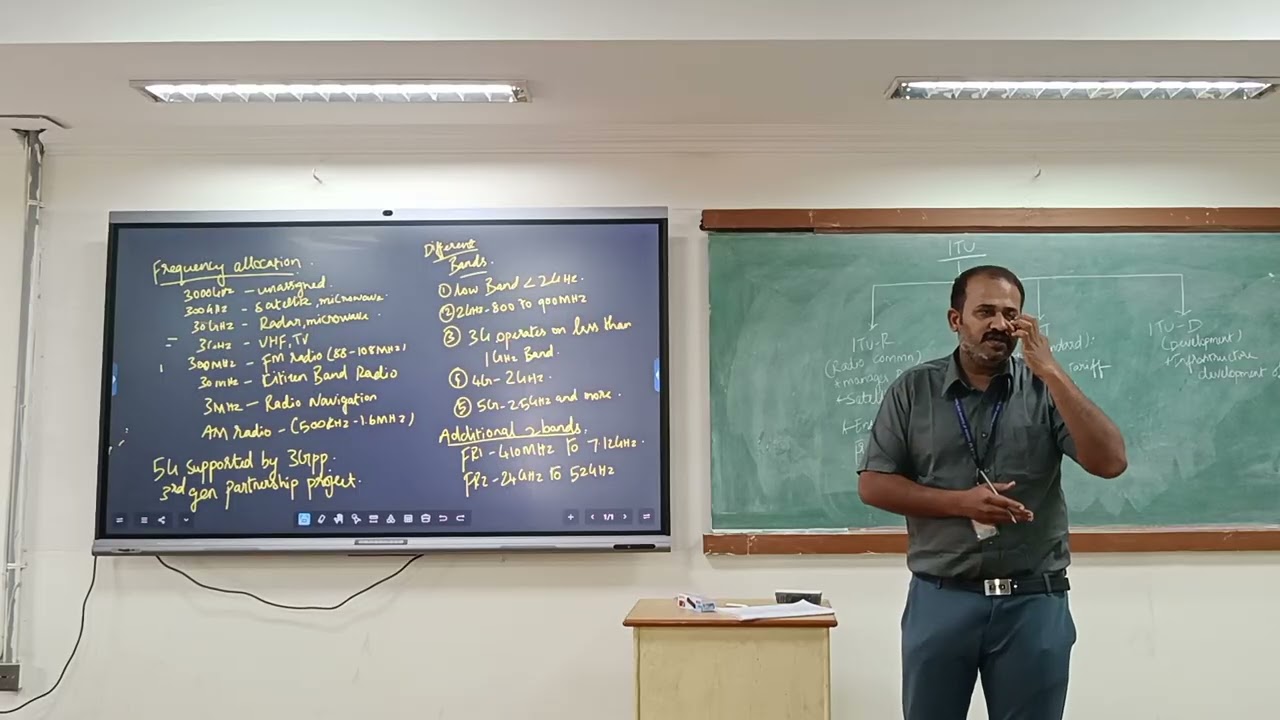 Frequency allocation.
3000GHz - unassigned.
300GHz - Satellite, microwave
30GHz - Radar, microwave.
3GHz - VHF, TV
300MHz - FM radio (88-108MHz)
30MHz - Citizen Band Radio
3MHz - Radio Navigation
AM radio - (500kHz-1.6MHz)
5G supported by 3Gpp.
3rd gen partnership project.
Different
Bands.
① low Band < 2GHz.
② 2GHz-800 to 900MHz
③ 3G operates on less than
1GHz Band.
④ 4G-2GHz.
⑤ 5G-25GHz and more.
Additional 2 bands.
FR1-410MHz to 7.12GHz.
FR2-24GHz to 52GHz
1/1
ITU
ITU-R
(Radio commn)
*manages
ndard):
tariff
ITU-D
(Development)
Infrastructure
development